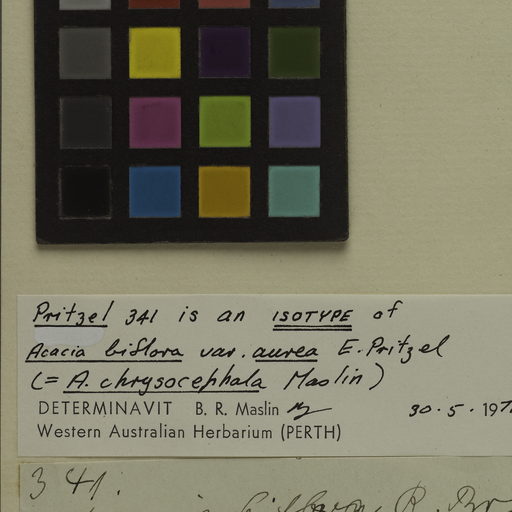 Pritzel 341 is an ISOTYPE of
Acacia biflora var. aurea E. Pritzel
(= A. chrysocephala Maslin)
DETERMINAVIT B. R. Maslin 30.5.197
Western Australian Herbarium (PERTH)
341.
biflora, R. Br